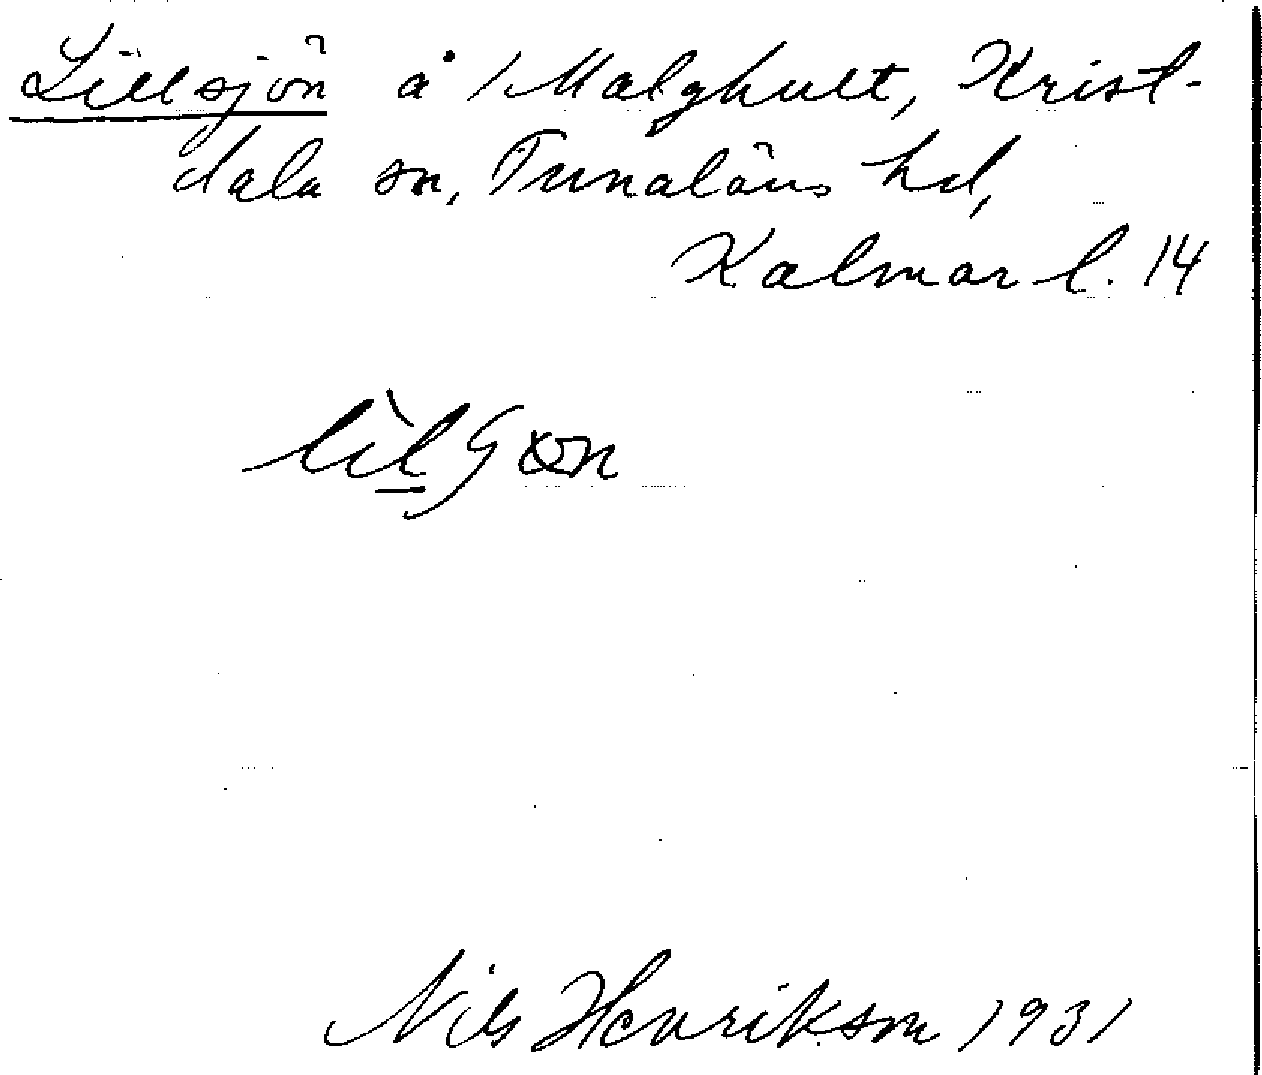 Lillsjön å 1 Malghult, Krist-
dala sn, Tunaläns hd,
Kalmar l. 14
Nils Henrikson 1931